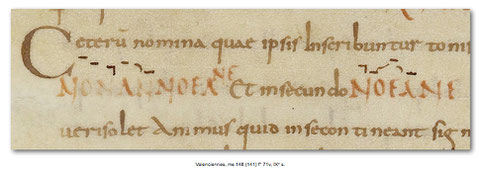 Ceterū nomina quae ipsis Inscribuntur tonis
NONANNOEANE Et insecundo NOEANE
uerisolet Animus quid insecon tineant sign
Valenciennes, ms 148 (141) f° 71v, IXe s.